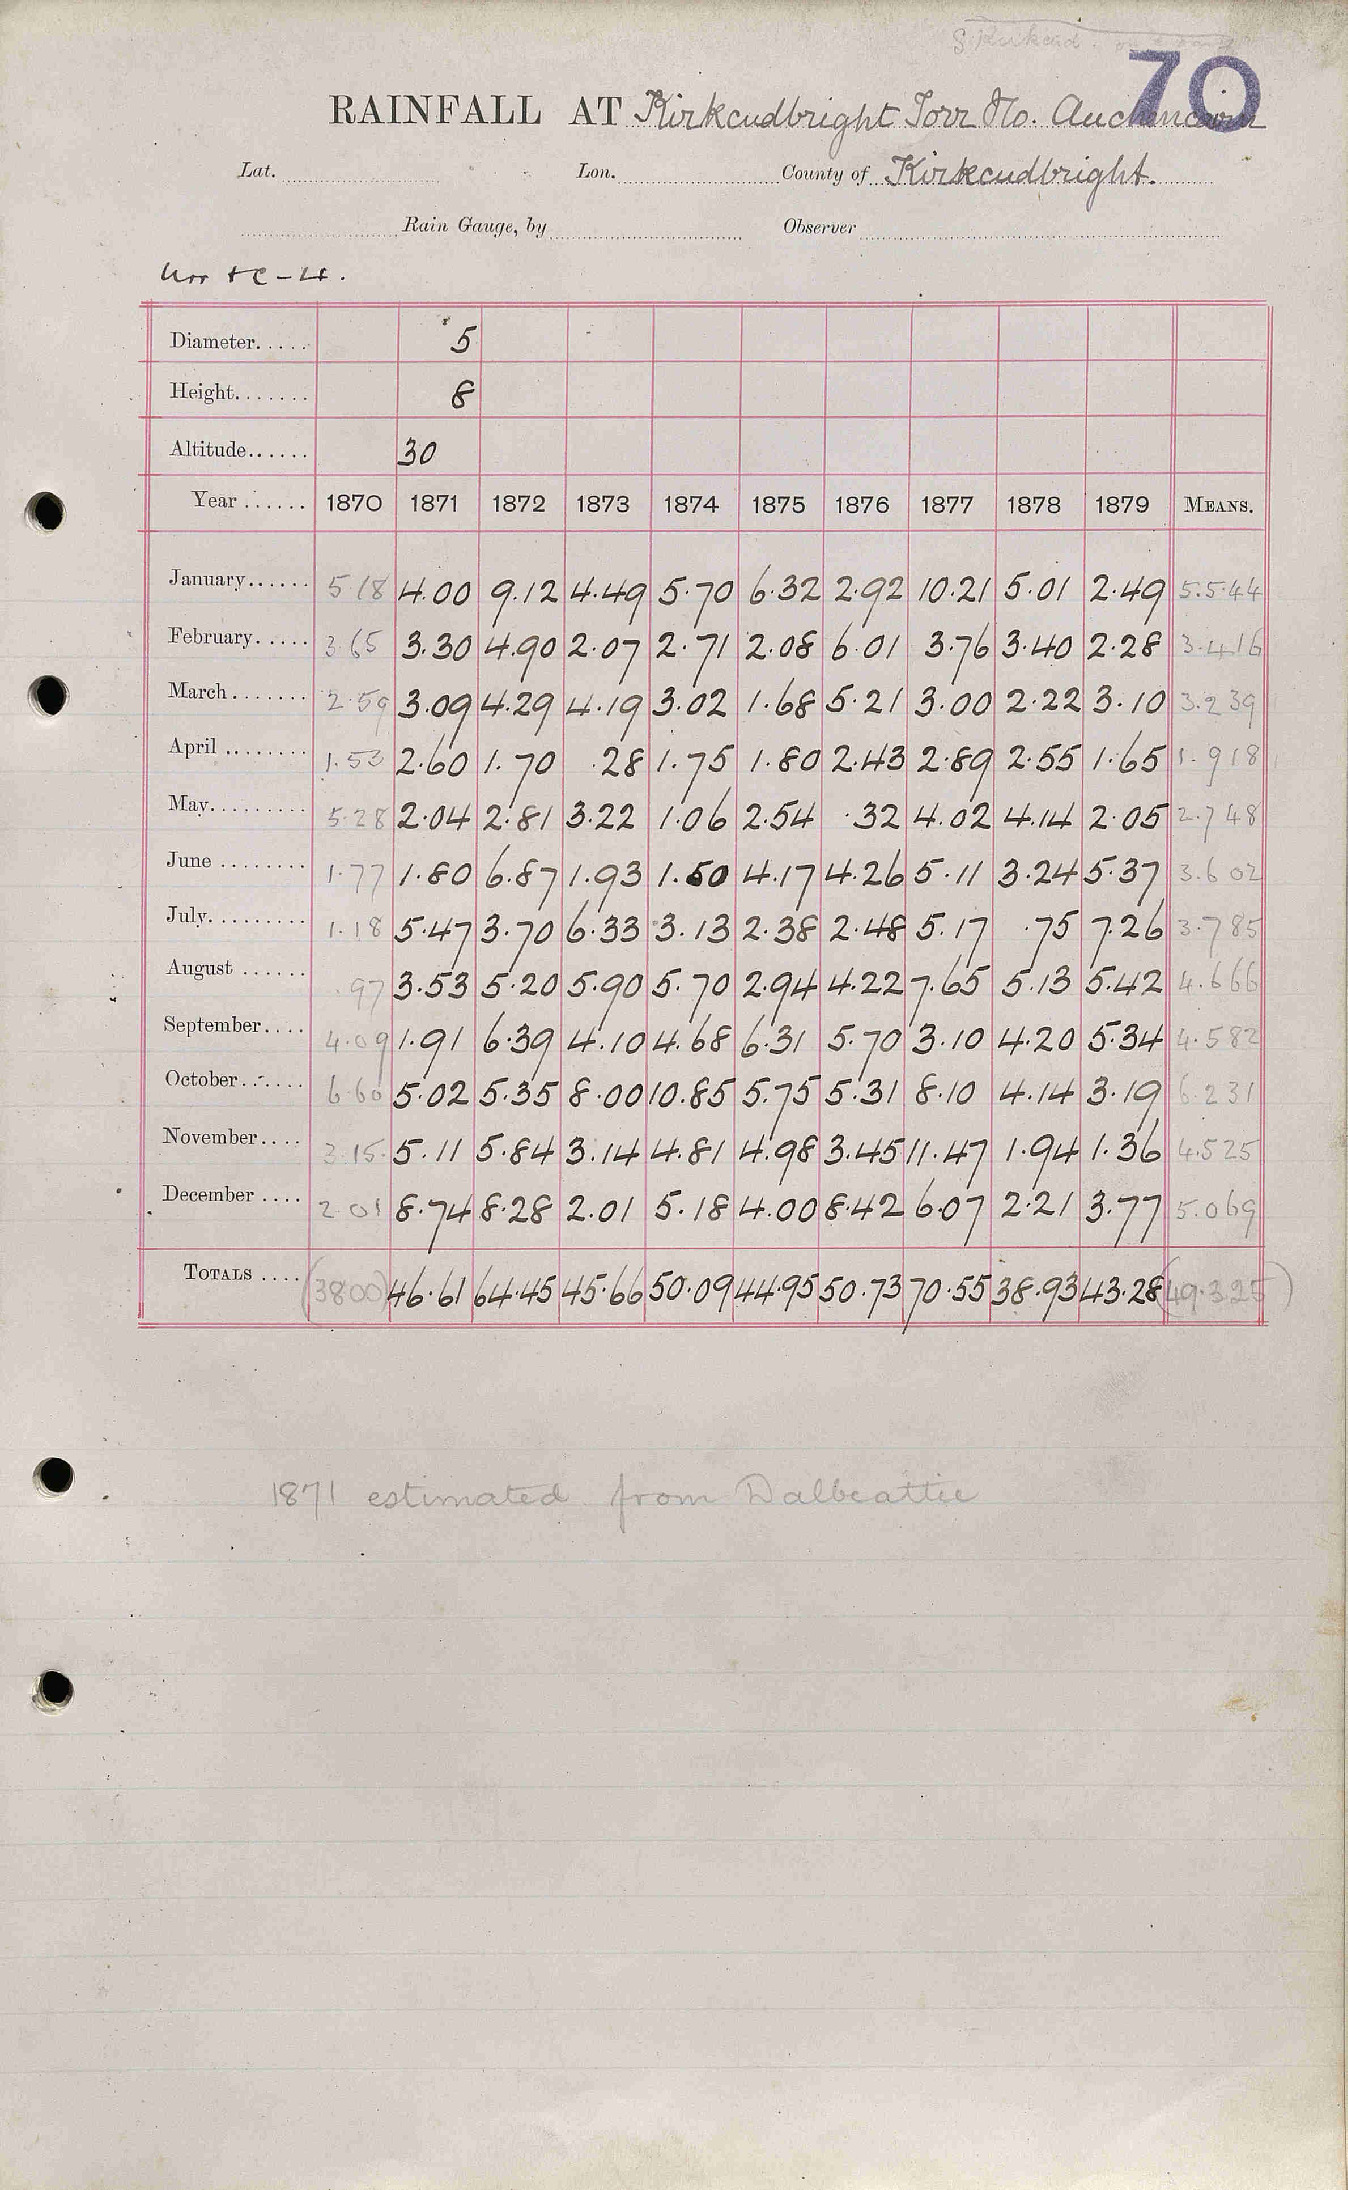 70
RAINFALL AT Kirkcudbright Torr Ho. Auchencairn
Lat. Lon. County of Kirkcudbright.
Rain Gauge, by Observer
Diameter..... 5
Height....... 8
Altitude...... 30
Year ...... 1870 1871 1872 1873 1874 1875 1876 1877 1878 1879 MEANS.
January...... 5.18 4.00 9.12 4.49 5.70 6.32 2.92 10.21 5.01 2.49 5.544
February..... 3.65 3.30 4.90 2.07 2.71 2.08 6.01 3.76 3.40 2.28 3.416
March........ 2.59 3.09 4.29 4.19 3.02 1.68 5.21 3.00 2.22 3.10 3.239
April ........ 1.53 2.60 1.70 .28 1.75 1.80 2.43 2.89 2.55 1.65 1.918
May.......... 5.28 2.04 2.81 3.22 1.06 2.54 .32 4.02 4.14 2.05 2.748
June ........ 1.77 1.80 6.87 1.93 1.50 4.17 4.26 5.11 3.24 5.37 3.602
July.......... 1.18 5.47 3.70 6.33 3.13 2.38 2.48 5.17 .75 7.26 3.785
August ...... .97 3.53 5.20 5.90 5.70 2.94 4.22 7.65 5.13 5.42 4.666
September.... 4.09 1.91 6.39 4.10 4.68 6.31 5.70 3.10 4.20 5.34 4.582
October...... 6.60 5.02 5.35 8.00 10.85 5.75 5.31 8.10 4.14 3.19 6.231
November.... 3.15 5.11 5.84 3.14 4.81 4.98 3.45 11.47 1.94 1.36 4.525
December .... 2.01 8.74 8.28 2.01 5.18 4.00 8.42 6.07 2.21 3.77 5.069
TOTALS .... (38.00) 46.61 64.45 45.66 50.09 44.95 50.73 70.55 38.93 43.28 (49.325)
1871 estimated from Dalbeattie